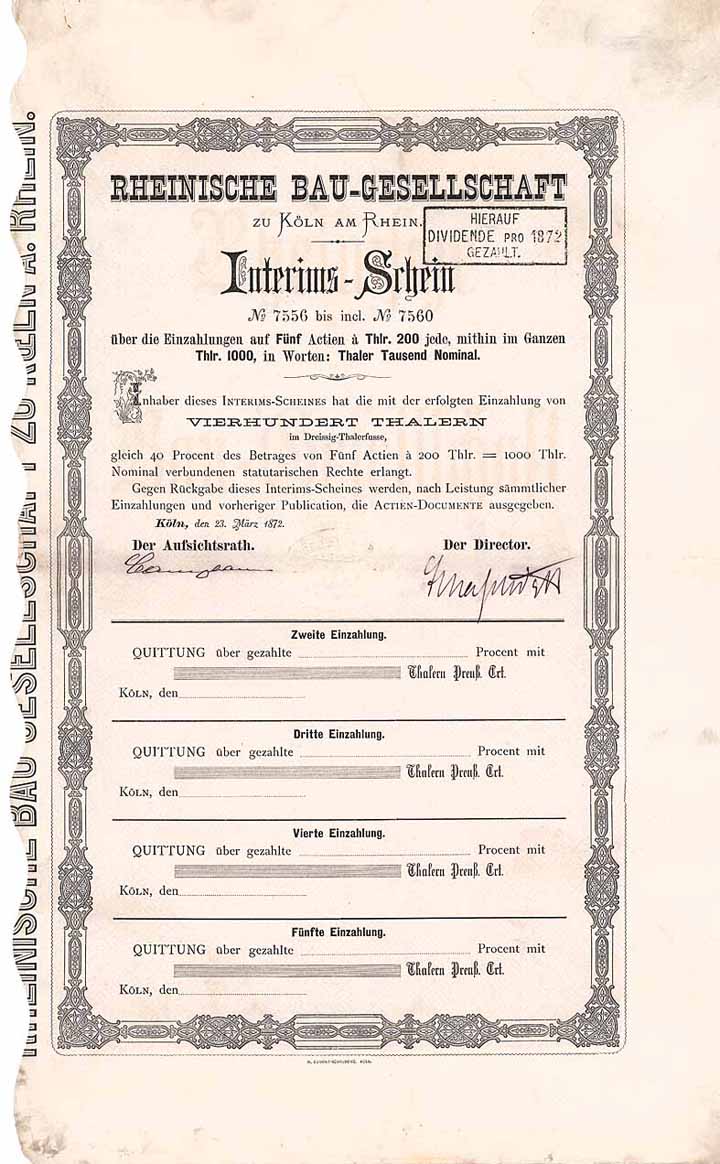 RHEINISCHE BAU-GESELLSCHAFT
ZU KÖLN AM RHEIN.
HIERAUF
DIVIDENDE PRO 1872
GEZAHLT.
Interims-Schein
№ 7556 bis incl. № 7560
über die Einzahlungen auf Fünf Actien à Thlr. 200 jede, mithin im Ganzen
Thlr. 1000, in Worten: Thaler Tausend Nominal.
Inhaber dieses INTERIMS-SCHEINES hat die mit der erfolgten Einzahlung von
VIERHUNDERT THALERN
im Dreissig-Thalerfusse,
gleich 40 Procent des Betrages von Fünf Actien à 200 Thlr. = 1000 Thlr.
Nominal verbundenen statutarischen Rechte erlangt.
Gegen Rückgabe dieses Interims-Scheines werden, nach Leistung sämmtlicher
Einzahlungen und vorheriger Publication, die ACTIEN-DOCUMENTE ausgegeben.
Köln, den 23. März 1872.
Der Aufsichtsrath. Der Director.
Zweite Einzahlung.
QUITTUNG über gezahlte Procent mit
Thalern Preuß. Crt.
KÖLN, den
Dritte Einzahlung.
QUITTUNG über gezahlte Procent mit
Thalern Preuß. Crt.
KÖLN, den
Vierte Einzahlung.
QUITTUNG über gezahlte Procent mit
Thalern Preuß. Crt.
KÖLN, den
Fünfte Einzahlung.
QUITTUNG über gezahlte Procent mit
Thalern Preuß. Crt.
KÖLN, den
RHEINISCHE BAU GESELLSCHAFT ZU KOELN A. RHEIN.